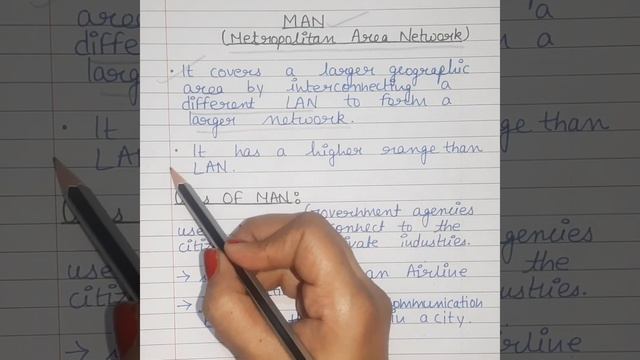 MAN
(Metropolitan Area Network)
· It covers a larger geographic
area by interconnecting a
different LAN to form a
larger network.
· It has a higher range than
LAN.
OF MAN:
Government agencies
use connect to the
citi private industries.
→ an Airline
→ communication
in a city.